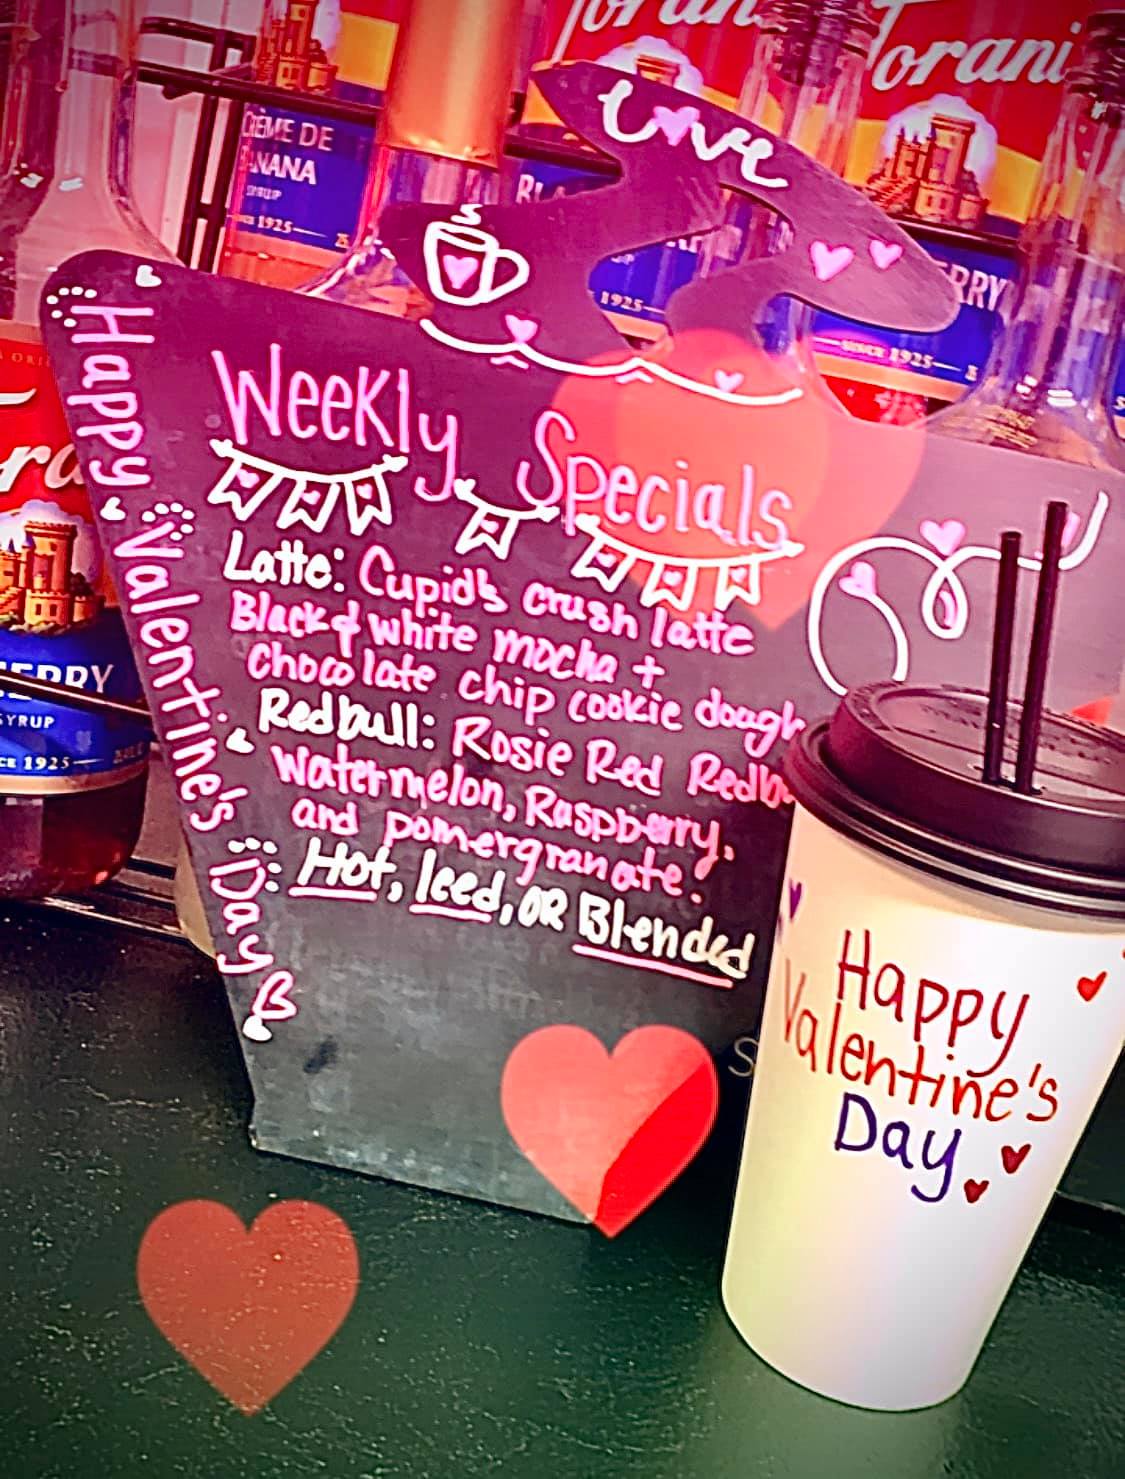 Torani
Torani
CRÈME DE
SYRUP
1925
1925
SINCE 1925
SYRUP
1925
Love
Happy Valentine's Day
Weekly Specials
Latte: Cupid's crush latte
Black & white mocha +
chocolate chip cookie dough
Redbull: Rosie Red Redb
Watermelon, Raspberry,
and pomergranate.
Hot, Iced, OR Blended
Happy
Valentine's
Day